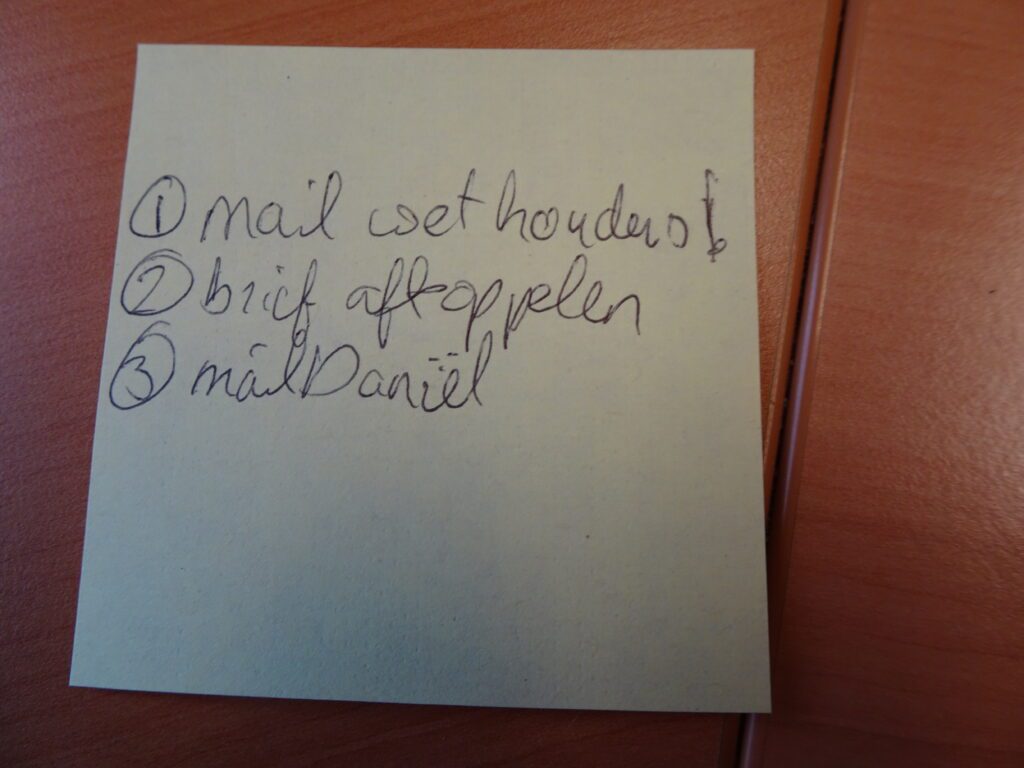 ① mail wethouders!
② brief aftoppelen
③ mail Daniël